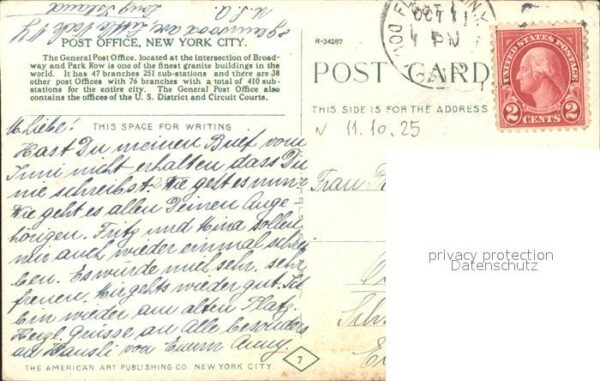 U.S.A.
Long Island
POST OFFICE, NEW YORK CITY.
The General Post Office, located at the intersection of Broad-
way and Park Row is one of the finest granite buildings in the
world. It has 47 branches 251 sub-stations and there are 38
other post Offices with 76 branches with a total of 410 sub-
stations for the entire city. The General Post Office also
contains the offices of the U. S. District and Circuit Courts.
THIS SPACE FOR WRITING
M. Liebe!
Hast Du meinen Brief vom
Juni nicht erhalten dass Du
nie schreibst? Wie geht es nun?
Wie geht es allen Deinen Ange-
hörigen. Fritz und Mina sollen
mir auch wieder einmal schrei-
ben. Es würde mich sehr, sehr
freuen. Mir gehts wieder gut. Ich
bin wieder am alten Platz.
Herzl. Grüsse an Alle besonders
an Hansli von Eurem Anny.
THE AMERICAN ART PUBLISHING CO. NEW YORK CITY.
7
R-34287
POST CARD
THIS SIDE IS FOR THE ADDRESS
OCT 11
4 PM
UNITED STATES POSTAGE
2 CENTS 2
11.10.25
Frau
privacy protection
Datenschutz